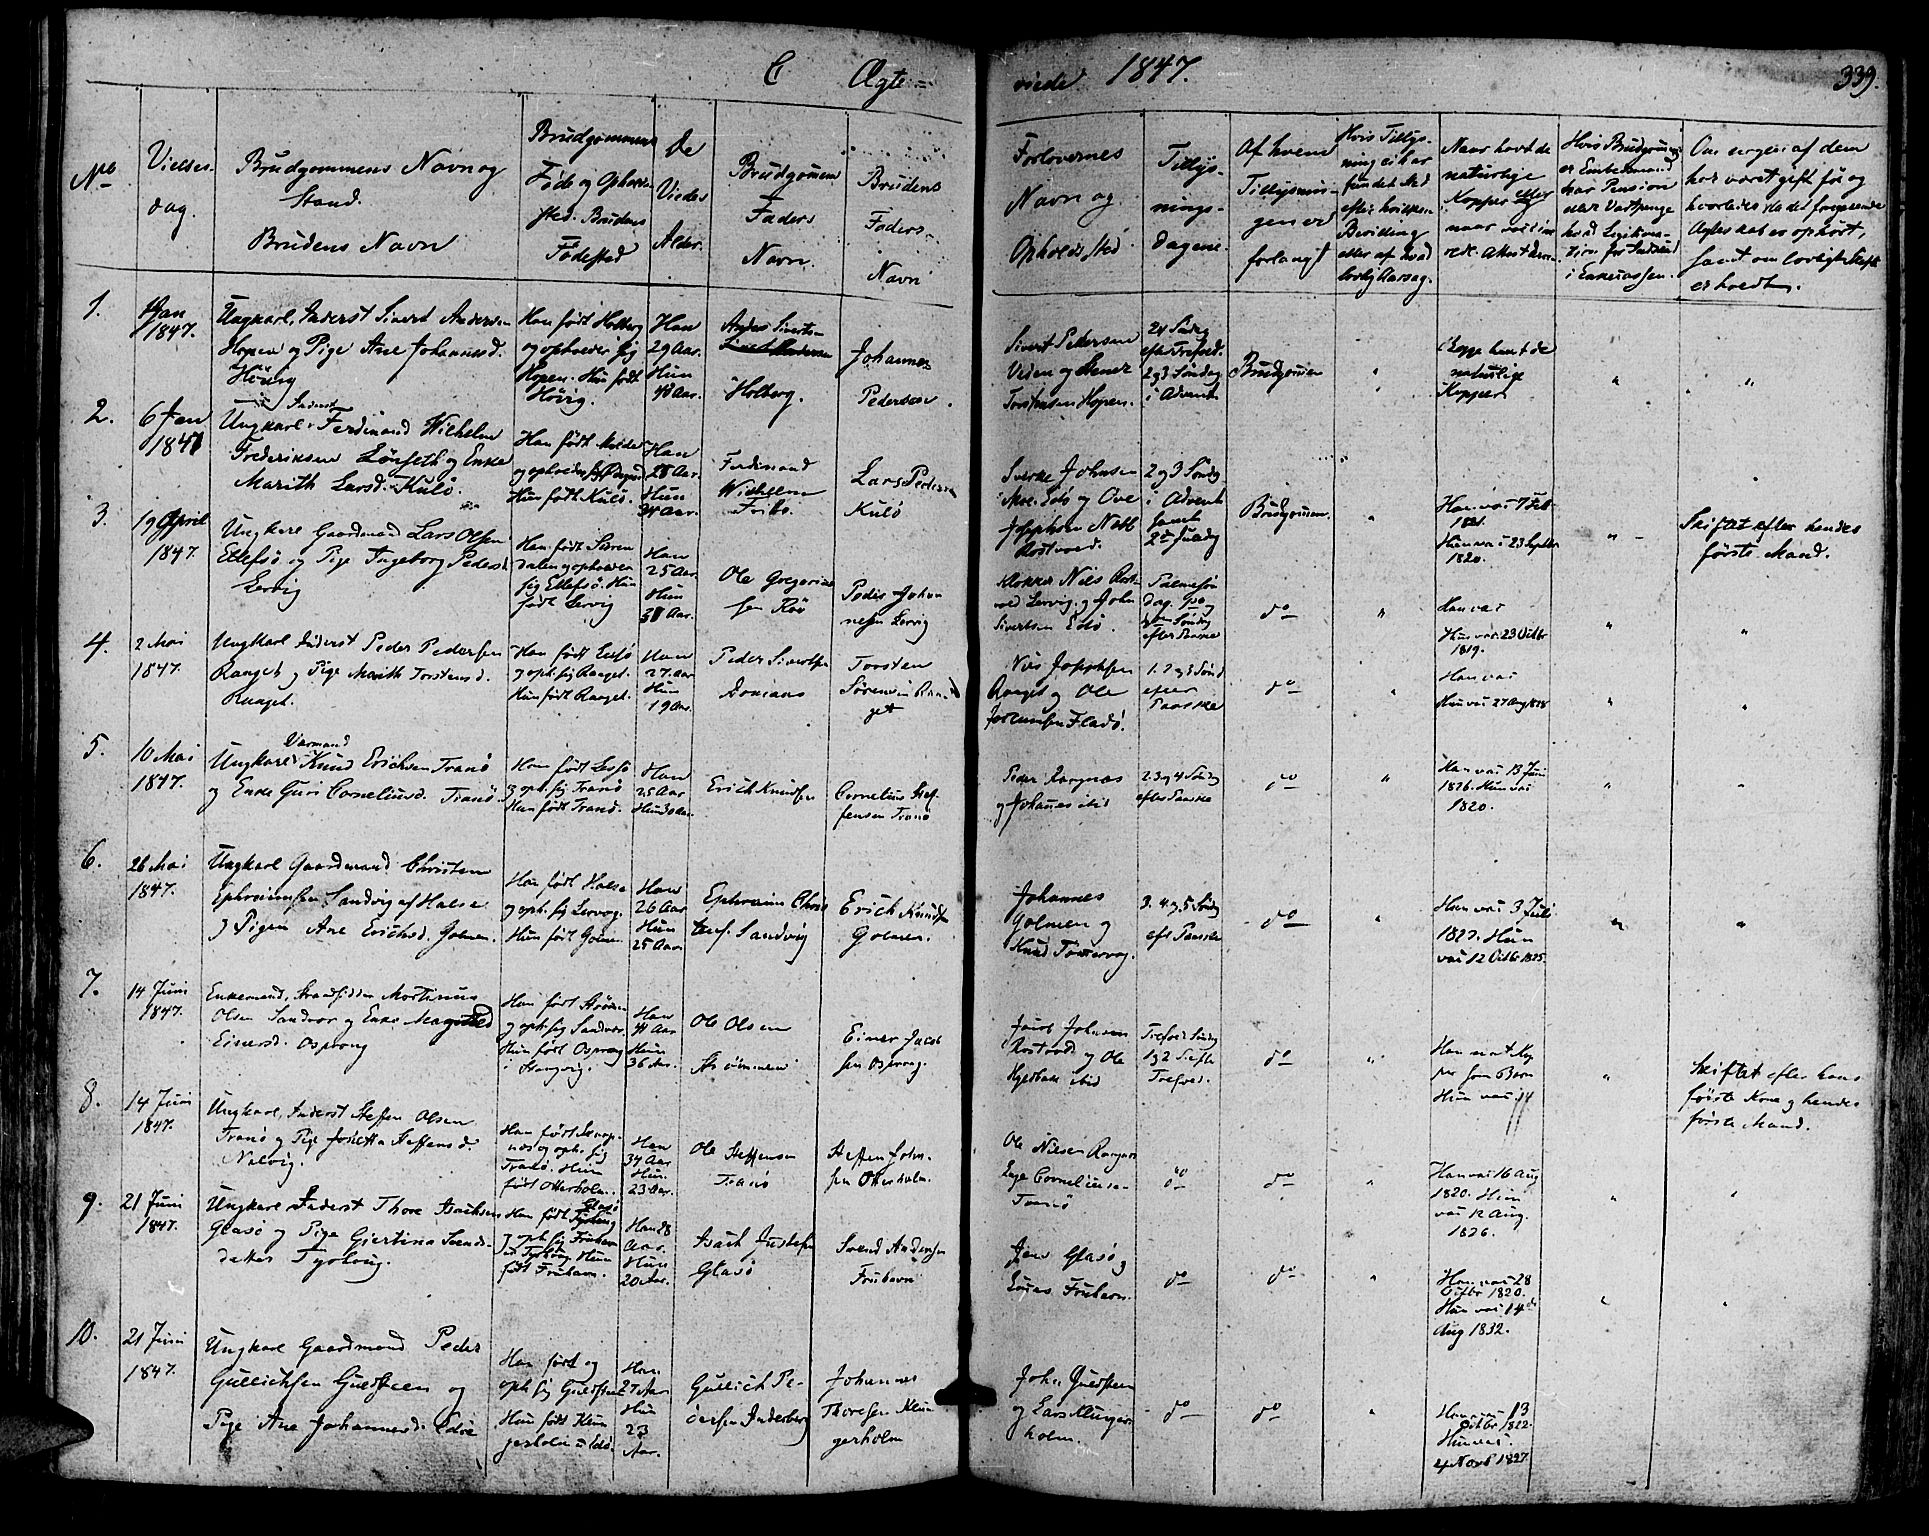 C Ægte-
viede 1847.
339.
No
Vielses
dag.
Brudgommens Navn og
Stand.
Brudens Navn
Brudgommens
Føde og Opholds
sted. Brudens
Fødested
De
Viedes
Alder.
Brudgommens
Faders
Navn.
Brudens
Faders
Navn
Forlovernes
Navn og
Opholdssted
Tillys-
nings-
dagene
Af hvem
Tillysnin-
gen er
forlangt
Hvis Tillys-
ning ei har
fundet sted
efter hvilken
Bevilling
eller af hvad
lovlig Aarsag.
Naar havt de
naturlige
Kopper eller
naar vaccine-
rede
Hvis Brudgommen
er Embedsmand
har Pension
eller Vartpenge
hvad Legitima-
tion for Indskud
i Enkecassen.
Om nogen af dem
har været gift før og
hvorledes da det foregaaende
Ægteskab er ophørt,
samt om lovligt Skifte
er holdt.
1.
1 Jan
1847.
Ungkarl, Inderst Sivert Andersen
Hopen og Pige Ane Johannesd.
Høvig
Han født Holberg
og opholder sig
Hopen. Hun født
Høvig.
Han
29 Aar.
Hun
40 Aar.
Anders Sivertsen
Holberg.
Johannes
Pedersen.
Sivert Pedersen
Veden og
Torstensen Hopen.
24 Søndag
eft. Trefold.
2 og 3 Søndag
i Advent
Brudgommen
"
Begge havt de
naturlige
Kopper
"
"
2.
6 Jan
1847
Inderst
Ungkarl Ferdinand Wilhelm
Frederiksen Lønseth og Enke
Marith Larsd. Kulø.
Han født Molde
Hun født Kulø.
Han
28 Aar.
Hun
34 Aar.
Ferdinand
Wilhelm
Lars Pedersen
Kulø
Sverke Johnsen
Edø og Ove
Josephsen
Rostvold.
2 og 3 Søndag
i Advent
samt
2den Juledag
Brudgommen.
"
Han vac 7 Feb
1821.
Hun vac 23 Septbr
1820.
"
Skiftet efter hendes
første Mand.
3.
19 April
1847.
Ungkarl Gaardmand Lars Olsen
Ettefsø og Pige Ingeborg Pedersd.
Lervig
Han født Suren
dalen og opholder
sig Ettefsø. Hun
født Lervig
Han
25 Aar
Hun
Aar.
Ole Gregorius
sen Røe
Peder Johan
nesen Lervig
Klokker Niels Rost-
vold Lervig og John
Sivertsen Edø.
Palmesøn
dag. og
Søndag
efter Paaske
do
"
Han vac
Hun vac 23 Octbr
1819.
"
"
4.
2 Mai
1847.
Ungkarl Inderst Peder Pedersen
Ranget og Pige Marith Torstensd.
Ranget.
og oph. sig Ranget.
Hun født Ranget.
Han
27 Aar
Hun
19 Aar.
Peder Sivertsen
Torsten
Sørensen Ran-
get
Nils Josephsen
Ranget og Ole
Fladø.
1. 2 og 3 Sønd
efter
Paaske
do
"
Han vac
Hun vac 27 Aug 1828
"
"
5.
10 Mai
1847.
Varmand
Ungkarl Knud Erichsen Tranø
og Enke Guri Corneliusd. Tranø.
og oph. sig Tranø
Hun født Tranø.
Han
25 Aar
Erich Knudsen
Cornelius Stef
fensen Tranø
Peder Rangnæs
og Johannes ibid
2. 3 og 4 Søndag
efter Paaske
do
"
Han vac 13 Juni
1826. Hun vac
1820.
"
"
6.
26 Mai
1847.
Ungkarl Gaardmand Christen
Ephraimsen Sandvig af Halse
og Pigen Ane Erichsd. Golmen.
Han født Halse
og oph. sig Lervog.
Hun født Golmen.
Han
26 Aar
Hun
25 Aar
Ephraim Chris
tens. Sandvig
Erich Knudsen
Golmen.
Johannes
Golmen og
Knud Tømmervog.
3. 4 og 5 Søndag
eft Paaske
do
"
Han vac 3 Juli
1827. Hun
vac 12 Octbr 1825.
"
"
7.
14 Juni
1847.
Enkemand, Strandsidder Mortinus
Olsen Sandvor og Enke
Einersd. Ospvog
og oph. sig Sandvor.
Hun født Ospvog
Han
Aar
Hun
36 Aar.
Ole Olsen
Einer Jacob
sen Ospvog.
Jacob Johnsen
Rostvold og Ole
ibid
Trefold. Søndag
1 og 2 S. eft.
Trefold.
do
"
Han havt Kop
per som Barn
Hun vac
"
Skiftet efter hans
første Kone og hendes
første Mand.
8.
14 Juni
1847.
Ungkarl, Inderst Steffen Olsen
Tranø og Pige Josetta Steffensd.
Nalvig.
og oph. sig
Tranø. Hun
født Otterholm.
Han
34 Aar
Hun
23 Aar.
Ole Steffensen
Tranø
Steffen John-
sen Otterholm.
Ole Nielsen Rangnæs
Inge Corneliusen
Tranø
do
do
"
Han vac 16 Aug
1820. Hun
vac 12 Aug.
1826.
"
"
9.
21 Juni
1847.
Ungkarl Inderst Thore Isachsen
Glasø og Pige Giertina Svends-
datter Tyslvog.
Han født Glasø
Hun
født Fruhavn.
Han 28
Aar.
Hun
20 Aar.
Isach Justesen
Glasø
Svend Andersen
Fruhavn
Jens Glasø og
Fruhavn.
do
do
"
Han vac 28
Octbr 1820.
Hun vac 14de
Aug 1832.
"
"
10.
21 Juni
1847.
Ungkarl Gaardmand Peder
Gullichsen Guldsteen og
Pige Ane Johannesd. Edøe
Han født og
oph. sig Guldsteen
Hun født Klun
gerholm
Han
27 Aar
Hun
23
Aar.
Gullich Pe-
dersen Inderberg
Johannes
Thoresen Klun
gerholm
John Guldsteen
og Lars Klunger-
holm.
do
do
"
Han vac 13
Octbr 1822.
Hun vac
4 Novb 1827.